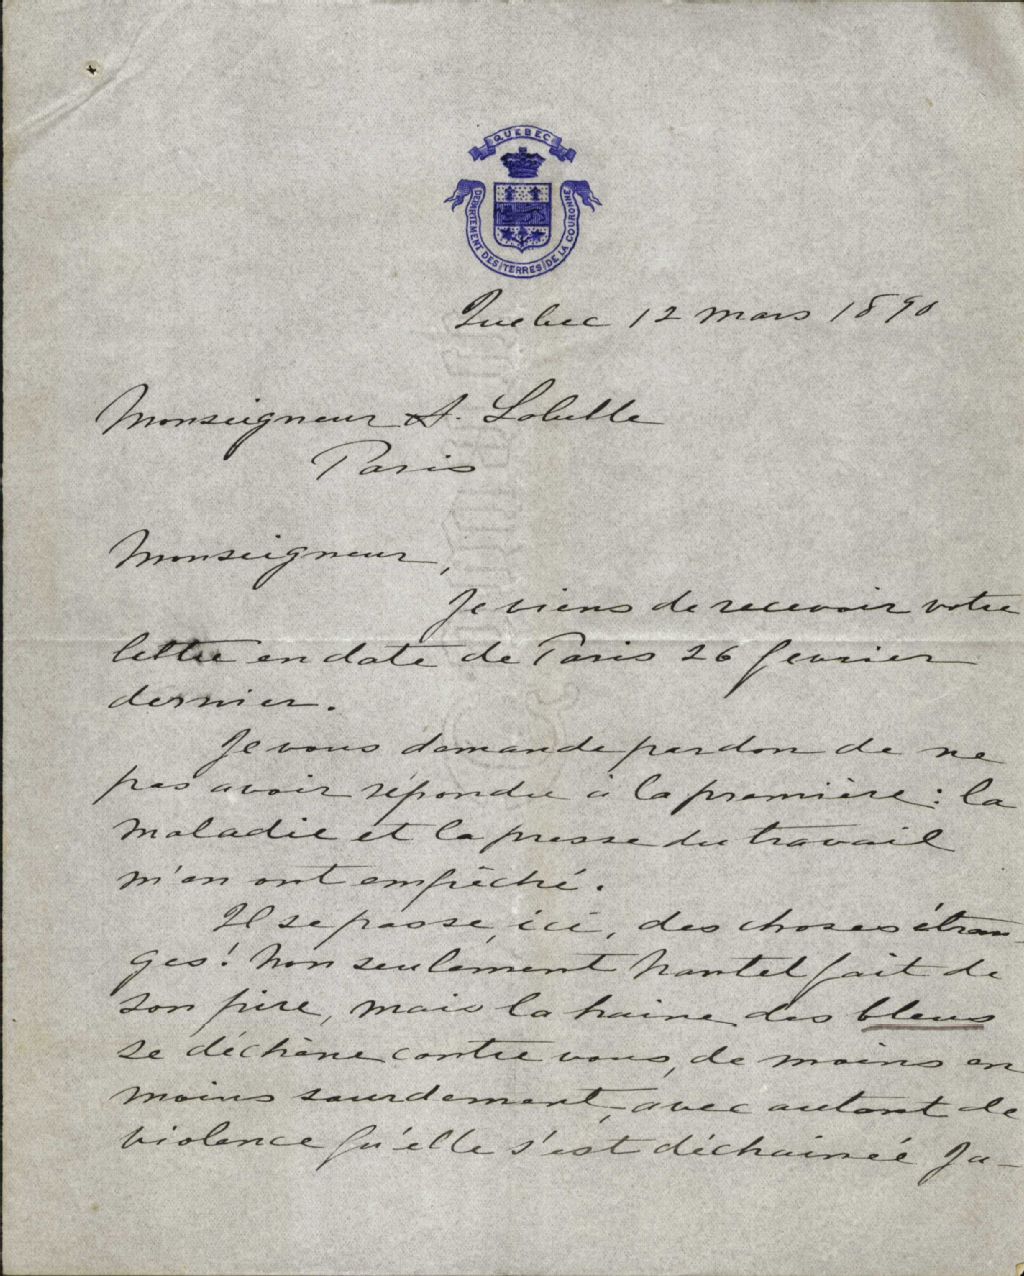 QUEBEC
DEPARTEMENT DES TERRES DE LA COURONNE
Quebec 12 mars 1890
Monseigneur A. Labelle
Paris
Monseigneur,
Je viens de recevoir votre
lettre en date de Paris 26 fevrier
dernier.
Je vous demande pardon de ne
pas avoir répondu à la première : la
maladie et la presse du travail
m'en ont empêché.
Il se passe, ici, des choses étran-
ges! Non seulement Nantel fait de
son pire, mais la haine des bleus
se déchâne contre vous, de moins en
moins sourdement, avec autant de
violence qu'elle s'est déchainée ja-